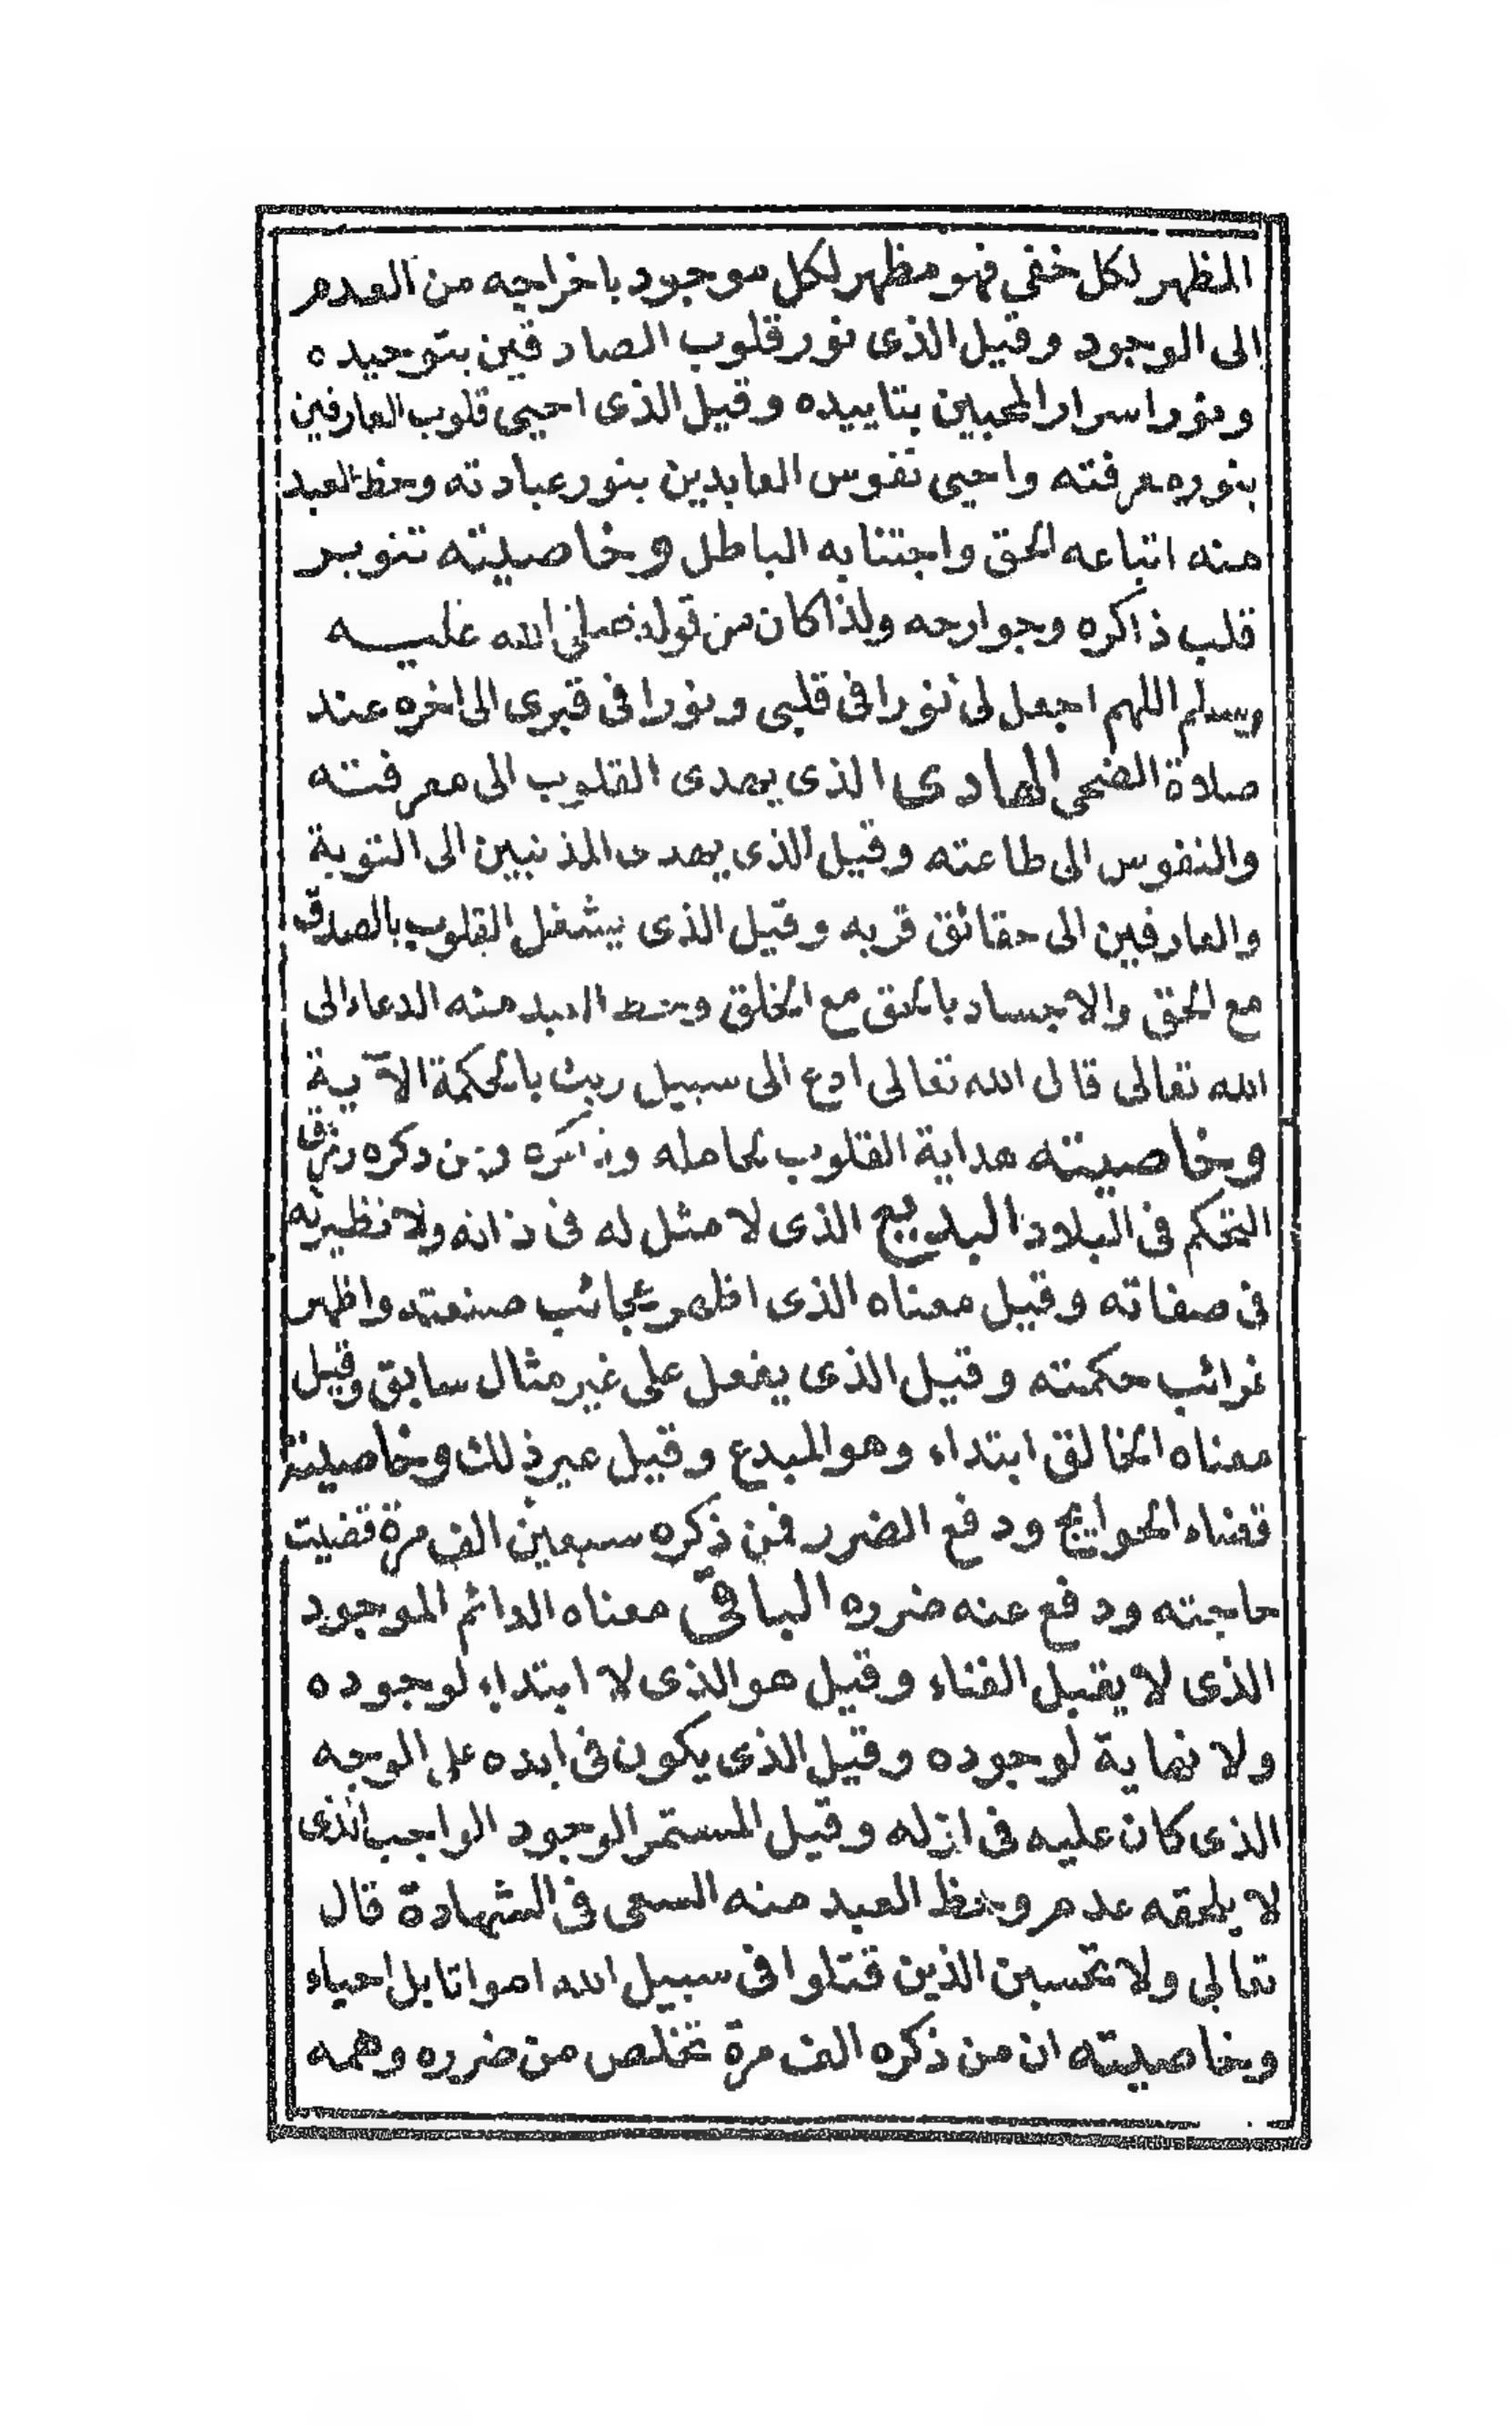 المظهر لكل خفى فهو مظهر لكل موجود باخراجه من العدم
الى الوجود وقيل الذى نور قلوب الصادقين بتوحيده
ونور اسرار المحبين بتاييده وقيل الذى احيى قلوب العارفين
بنور معرفته واحيى نفوس العابدين بنور عبادته وحظ العبد
منه اتباعه الحق واجتنابه الباطل وخاصيته تنوير
قلب ذاكره وجوارحه ولذا كان من قوله صلى الله عليه
وسلم اللهم اجعل لى نورا فى قلبى ونورا فى قبرى الى اخره عند
صلاة الضحى الهادى الذى يهدى القلوب الى معرفته
والنفوس الى طاعته وقيل الذى يهدى المذنبين الى التوبة
والعارفين الى حقائق قربه وقيل الذى يشغل القلوب بالصدق
مع الحق والاجساد بالحق مع الخلق وحظ العبد منه الدعاء الى
الله تعالى قال الله تعالى ادع الى سبيل ربك بالحكمة الآية
وخاصيته هداية القلوب لحامله وذاكره ومن ذكره رزق
التحكم فى البلاد البديع الذى لا مثل له فى ذاته ولا نظير له
فى صفاته وقيل معناه الذى اظهر عجائب صنعته واظهر
غرائب حكمته وقيل الذى يفعل على غير مثال سابق وقيل
معناه الخالق ابتداء وهو المبدع وقيل غير ذلك وخاصيته
قضاء الحوايج ودفع الضرر فمن ذكره سبعين الف مرة قضيت
حاجته ودفع عنه ضرره الباقى معناه الدائم الموجود
الذى لا يقبل الفناء وقيل هو الذى لا ابتداء لوجوده
ولا نهاية لوجوده وقيل الذى يكون فى ابده على الوجه
الذى كان عليه فى ازله وقيل المستمر الوجود الواجب الذى
لا يلحقه عدم وحظ العبد منه السعى فى الشهادة قال
تعالى ولا تحسبن الذين قتلوا فى سبيل الله امواتا بل احياء
وخاصيته ان من ذكره الف مرة تخلص من ضرره وهمه